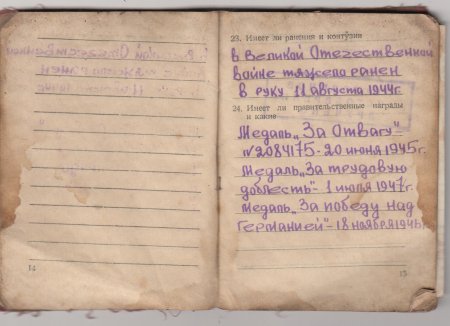 14
23. Имеет ли ранения и контузии
в Великой Отечественной
войне тяжело ранен
в руку 11 августа 1944г.
24. Имеет ли правительственные награды
и какие
Медаль „За Отвагу"-
№2084175-20 июня 1945г.
Медаль „За трудовую
доблесть"- 1 июля 1947г.
Медаль „За победу над
Германией"-18 ноября
15